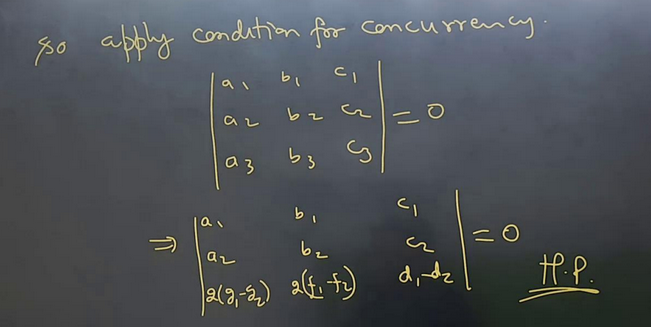 so apply condition for concurrency.
| a1 b1 c1 |
| a2 b2 c2 | = 0
| a3 b3 c3 |
⇒ | a1 b1 c1 |
| a2 b2 c2 | = 0
| 2(g1-g2) 2(f1-f2) d1-d2 | H.P.